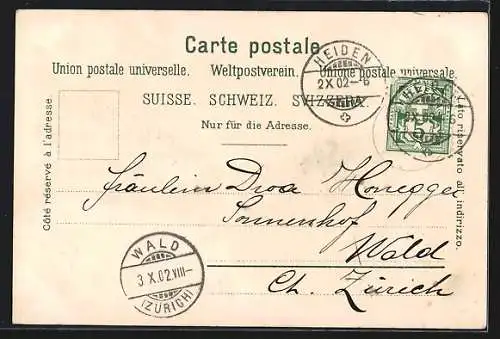 Carte postale.
Union postale universelle. Weltpostverein. Unione postale universale.
SUISSE. SCHWEIZ. SVIZZERA.
Nur für die Adresse.
Côté réservé à l'adresse
Lato riservato all'indirizzo.
HEIDEN
2 X 02 - 6
HEIDEN
2 X 02 - 6
5
Fräulein Dora Honegger
Sonnenhof
Wald
Ct. Zürich
WALD
3 X. 02. VIII -
(ZÜRICH)